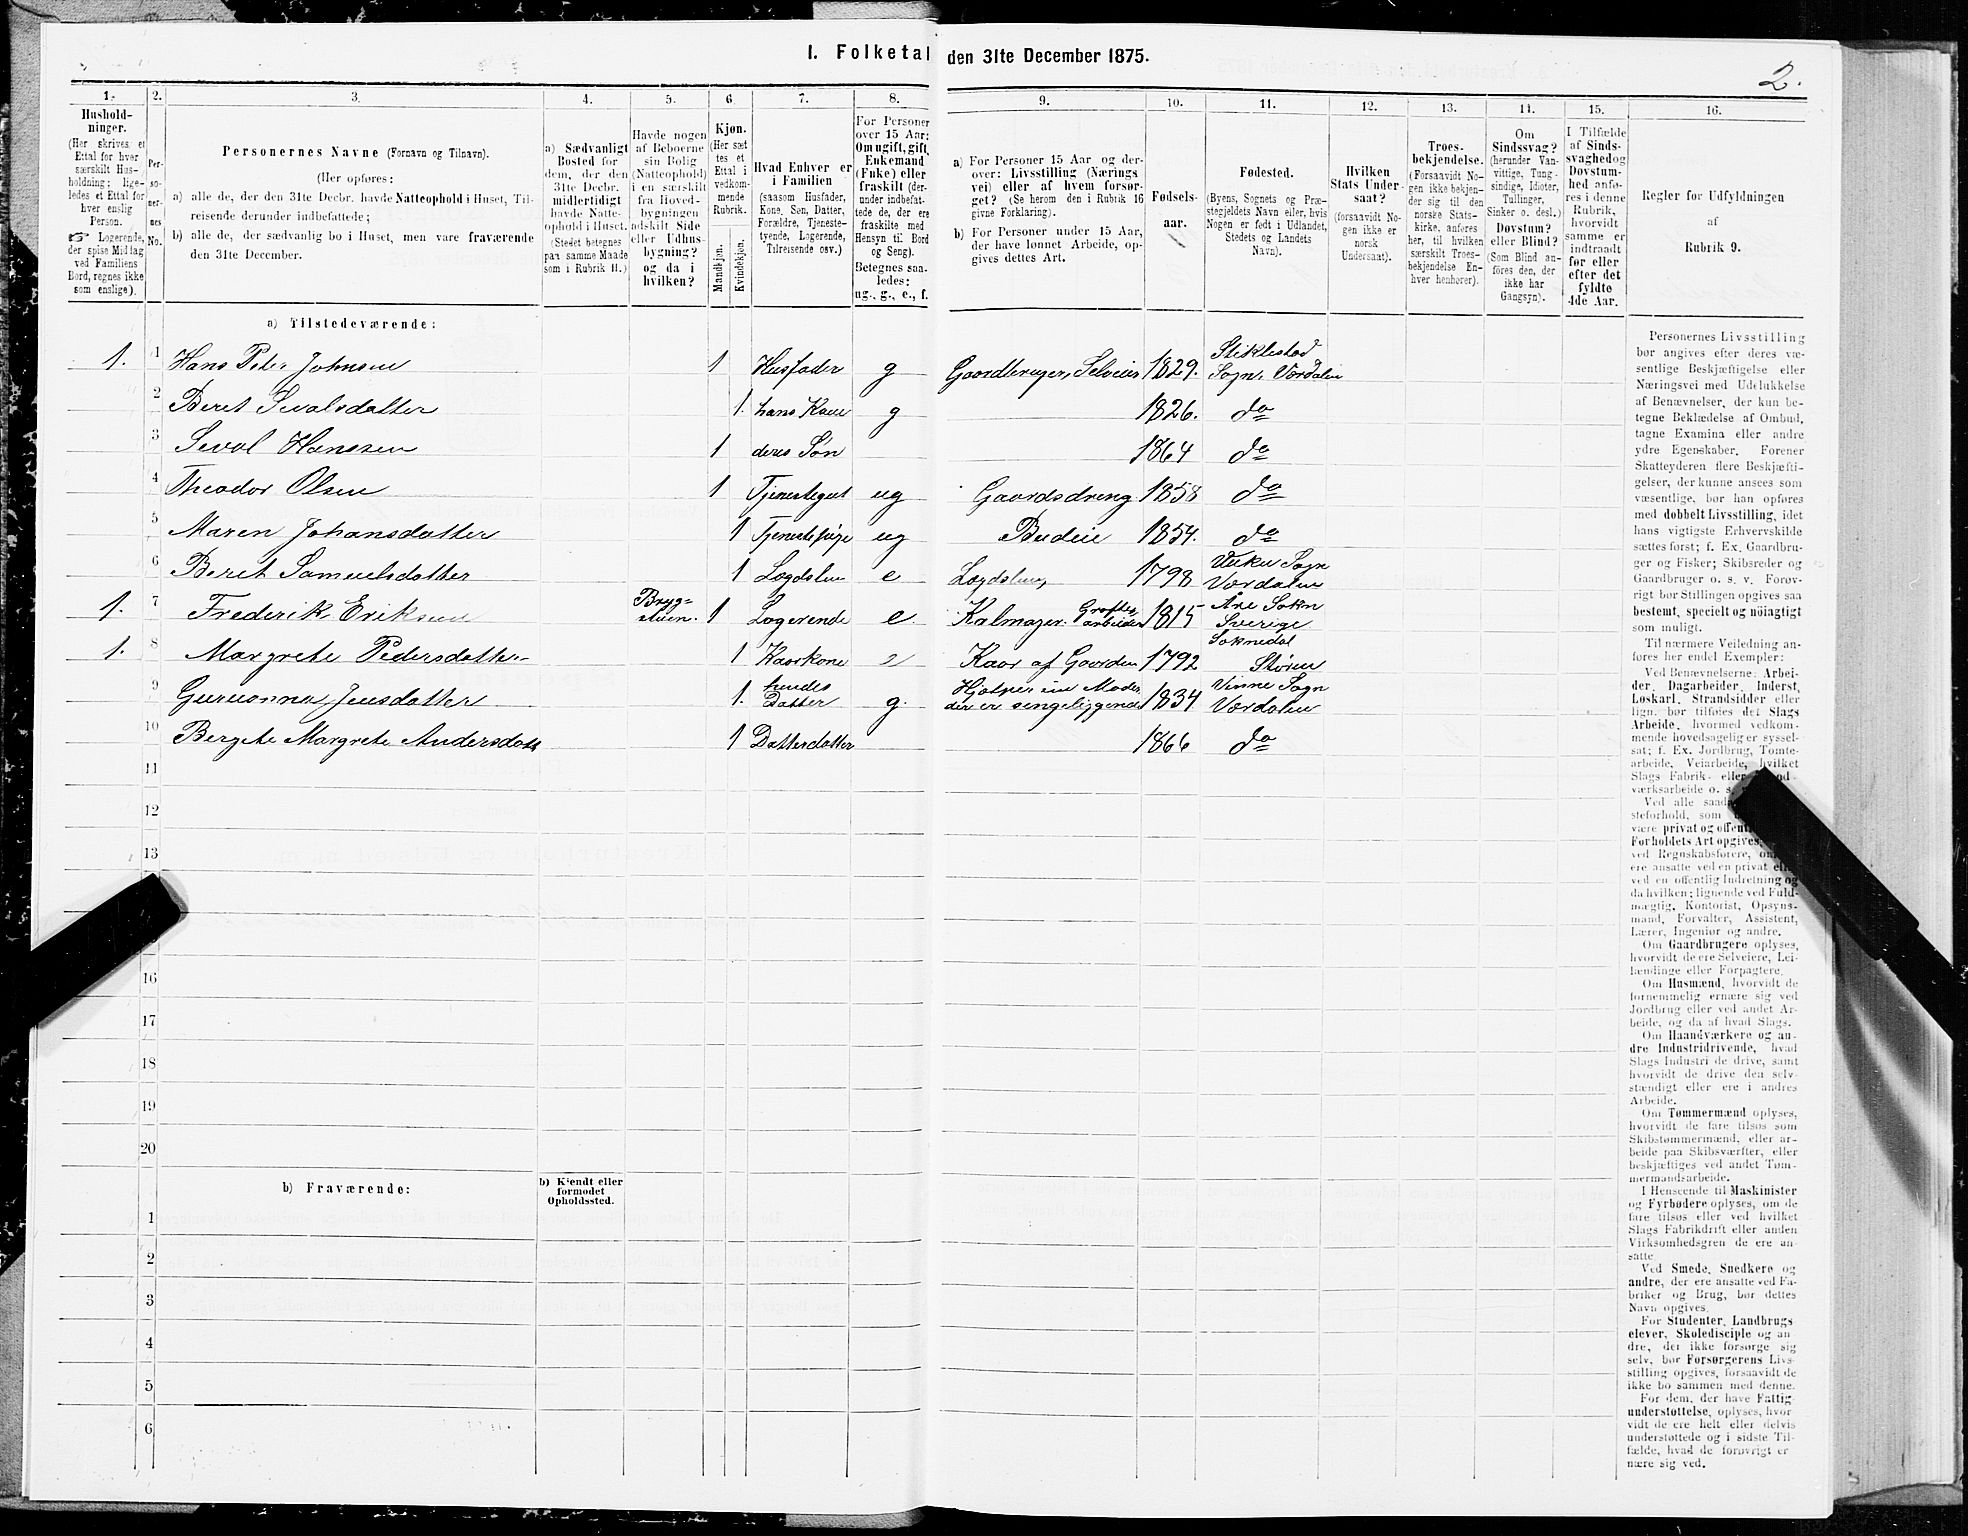 I. Folketal den 31te December 1875.
2.
1.
2.
3.
4.
5.
6
7.
8.
9.
10.
11.
12.
13.
14.
15.
16.
Hushold-
ninger.
(Her skrives et
Ettal for hver
særskilt Hus-
holdning; lige-
ledes et Ettal for
hver enslig
Person.
☞ Logerende,
der spise Middag
ved Familiens
Bord, regnes ikke
som enslige).
Per-
so-
ner-
nes
No.
Personernes Navne (Fornavn og Tilnavn).
(Her opføres:
a) alle de, der den 31te Decbr. havde Natteophold i Huset, Til-
reisende derunder indbefattede;
b) alle de, der sædvanlig bo i Huset, men vare fraværende
den 31te December.
a) Sædvanligt
Bosted for
dem, der den
31te Decbr.
midlertidigt
havde Natte-
ophold i Huset.
(Stedet betegnes
paa samme Maade
som i Rubrik 11.)
Havde nogen
af Beboerne
sin Bolig
(Natteophold)
i en særskilt
fra Hoved-
bygningen
adskilt Side
eller Udhus-
bygning?
og da i
hvilken?
Kjøn.
(Her sæt
tes et
Ettal i
vedkom-
mende
Rubrik.
Mandkjøn.
Kvindekjøn.
Hvad Enhver er
i Familien
(saasom Husfader,
Kone, Søn, Datter,
Forældre, Tjeneste-
tyende, Logerende,
Tilreisende osv.)
For Personer
over 15 Aar:
Om ugift, gift,
Enkemand
(Enke) eller
fraskilt (der-
under indbefat-
tede de, der ere
fraskilte med
Hensyn til Bord
og Seng).
Betegnes saa-
ledes:
ug., g., e., f.
a) For Personer 15 Aar og der-
over: Livsstilling (Nærings
vei) eller af hvem forsør-
get? (Se herom den i Rubrik 16
givne Forklaring).
b) For Personer under 15 Aar,
der have lønnet Arbeide, op-
gives dettes Art.
Fødsels-
aar.
Fødested.
(Byens, Sognets og Præ-
stegjeldets Navn eller, hvis
Nogen er født i Udlandet,
Stedets og Landets
Navn).
Hvilken
Stats Under-
saat?
(forsaavidt No-
gen ikke er
norsk
Undersaat).
Troes-
bekjendelse.
(Forsaavidt No-
gen ikke bekjen-
der sig til den
norske Stats-
kirke, anføres
her, til hvilken
særskilt Troes-
bekjendelse En-
hver henhører).
Om
Sindssvag?
(herunder Van-
vittige, Tung-
sindige, Idioter,
Tullinger,
Sinker o. desl.)
Døvstum?
eller Blind?
(Som Blind an-
føres den, der
ikke har
Gangsyn).
I Tilfælde
af Sinds-
svaghed og
Døvstum-
hed anfø-
res i denne
Rubrik,
hvorvidt
samme er
indtraadt
før eller
efter det
fyldte
4de Aar.
Regler for Udfyldningen
af
Rubrik 9.
a) Tilstedeværende:
1. 1 Hans Peter Johnsen 1 Husfader g Gaardbruger, Selveier 1829. Stiklestad Sogn, Værdalen
2 Beret Sevalsdatter 1. hans Kone g 1826. do
3 Seval Hanssen 1 deres Søn 1864 do
4 Theodor Olsen 1 Tjenestegut ug Gaardsdreng 1858 do
5 Maren Johansdatter 1 Tjenestepige ug Budeie 1854. do
6 Beret Samuelsdatter 1 Lægdslem e Lægdslem 1798 Vuku Sogn Værdalen
1. 7 Frederik Eriksen Bryg- stuen. 1 Logerende e. Kalmager. Grøfte arbeider 1815 Åre Sokn Sverige
1. 8 Margrete Pedersdatter 1 Kaarkone e Kaar af Gaarden 1792 Soknedal Støren
9 Guruanna Jensdatter 1. hendes Datter g. Hjælper sin Moder der er sengeliggende 1834 Vinne Sogn Værdalen
10 Bergete Margrete Andersdatt 1 Datterdatter 1866 do
11
12
13
16
17
18
19
20
b) Fraværende:
b) Kjendt eller
formodet
Opholdssted.
1
2
3
4
5
6
Personernes Livsstilling
bør angives efter deres væ-
sentlige Beskjæftigelse eller
Næringsvei med Udelukkelse
af Benævnelser, der kun be-
tegne Beklædelse af Ombud,
tagne Examina eller andre
ydre Egenskaber. Forener
Skatteyderen flere Beskjæfti-
gelser, der kunne ansees som
væsentlige, bør han opføres
med dobbelt Livsstilling, idet
hans vigtigste Erhvervskilde
sættes først; f. Ex. Gaardbru-
ger og Fisker; Skibsreder og
Gaardbruger o. s. v. Forøv-
rigt bør Stillingen opgives saa
bestemt, specielt og nöiagtigt
som muligt.
Til nærmere Veiledning an-
føres her endel Exempler:
Ved Benævnelserne: Arbei-
der, Dagarbeider, Inderst,
Løskarl, Strandsidder eller
lign. bør tilføies det Slags
Arbeide, hvormed vedkom-
mende hovedsagelig er syssel-
sat; f. Ex. Jordbrug, Tomte-
arbeide, Veiarbeide, hvilket
Slags Fabrik- eller
værksarbeide o. s.
Ved alle
steforhold, som
være privat og
Forholdets Art opgives,
ved Regnskabsførere,
ere ansatte ved en privat
ved en offentlig Indretning og
da hvilken; lignende ved Fuld-
mægtig, Kontorist, Opsyns-
mand, Forvalter, Assistent,
Lærer, Ingeniør og andre.
Om Gaardbrugere oplyses,
hvorvidt de ere Selveiere, Lei-
lændinge eller Forpagtere.
Om Husmænd, hvorvidt de
fornemmelig ernære sig ved
Jordbrug eller ved andet Ar-
beide, og da af hvad Slags.
Om Haandværkere og an-
dre Industridrivende, hvad
Slags Industri de drive, samt
hvorvidt de drive den selv-
stændigt eller ere i andres
Arbeide.
Om Tømmermænd oplyses,
hvorvidt de fare tilsøs som
Skibstømmermænd, eller ar-
beide paa Skibsværfter, eller
beskjæftiges ved andet Tøm-
mermandsarbeide.
I Henseende til Maskinister
og Fyrbødere oplyses, om de
fare tilsøs eller ved hvilket
Slags Fabrikdrift eller anden
Virksomhedsgren de ere an-
satte.
Ved Smede, Snedkere og
andre, der ere ansatte ved Fa-
briker og Brug, bør dettes
Navn opgives.
For Studenter, Landbrugs
elever, Skoledisciple og an-
dre, der ikke forsørge sig
selv, bør Forsørgerens Livs-
stilling opgives, forsaavidt de
ikke bo sammen med denne.
For dem, der have Fattig-
understøttelse, oplyses, hvor
vidt de ere helt eller delvis
understøttede og i sidste Til-
fælde, hvad de forøvrigt er
nære sig ved.